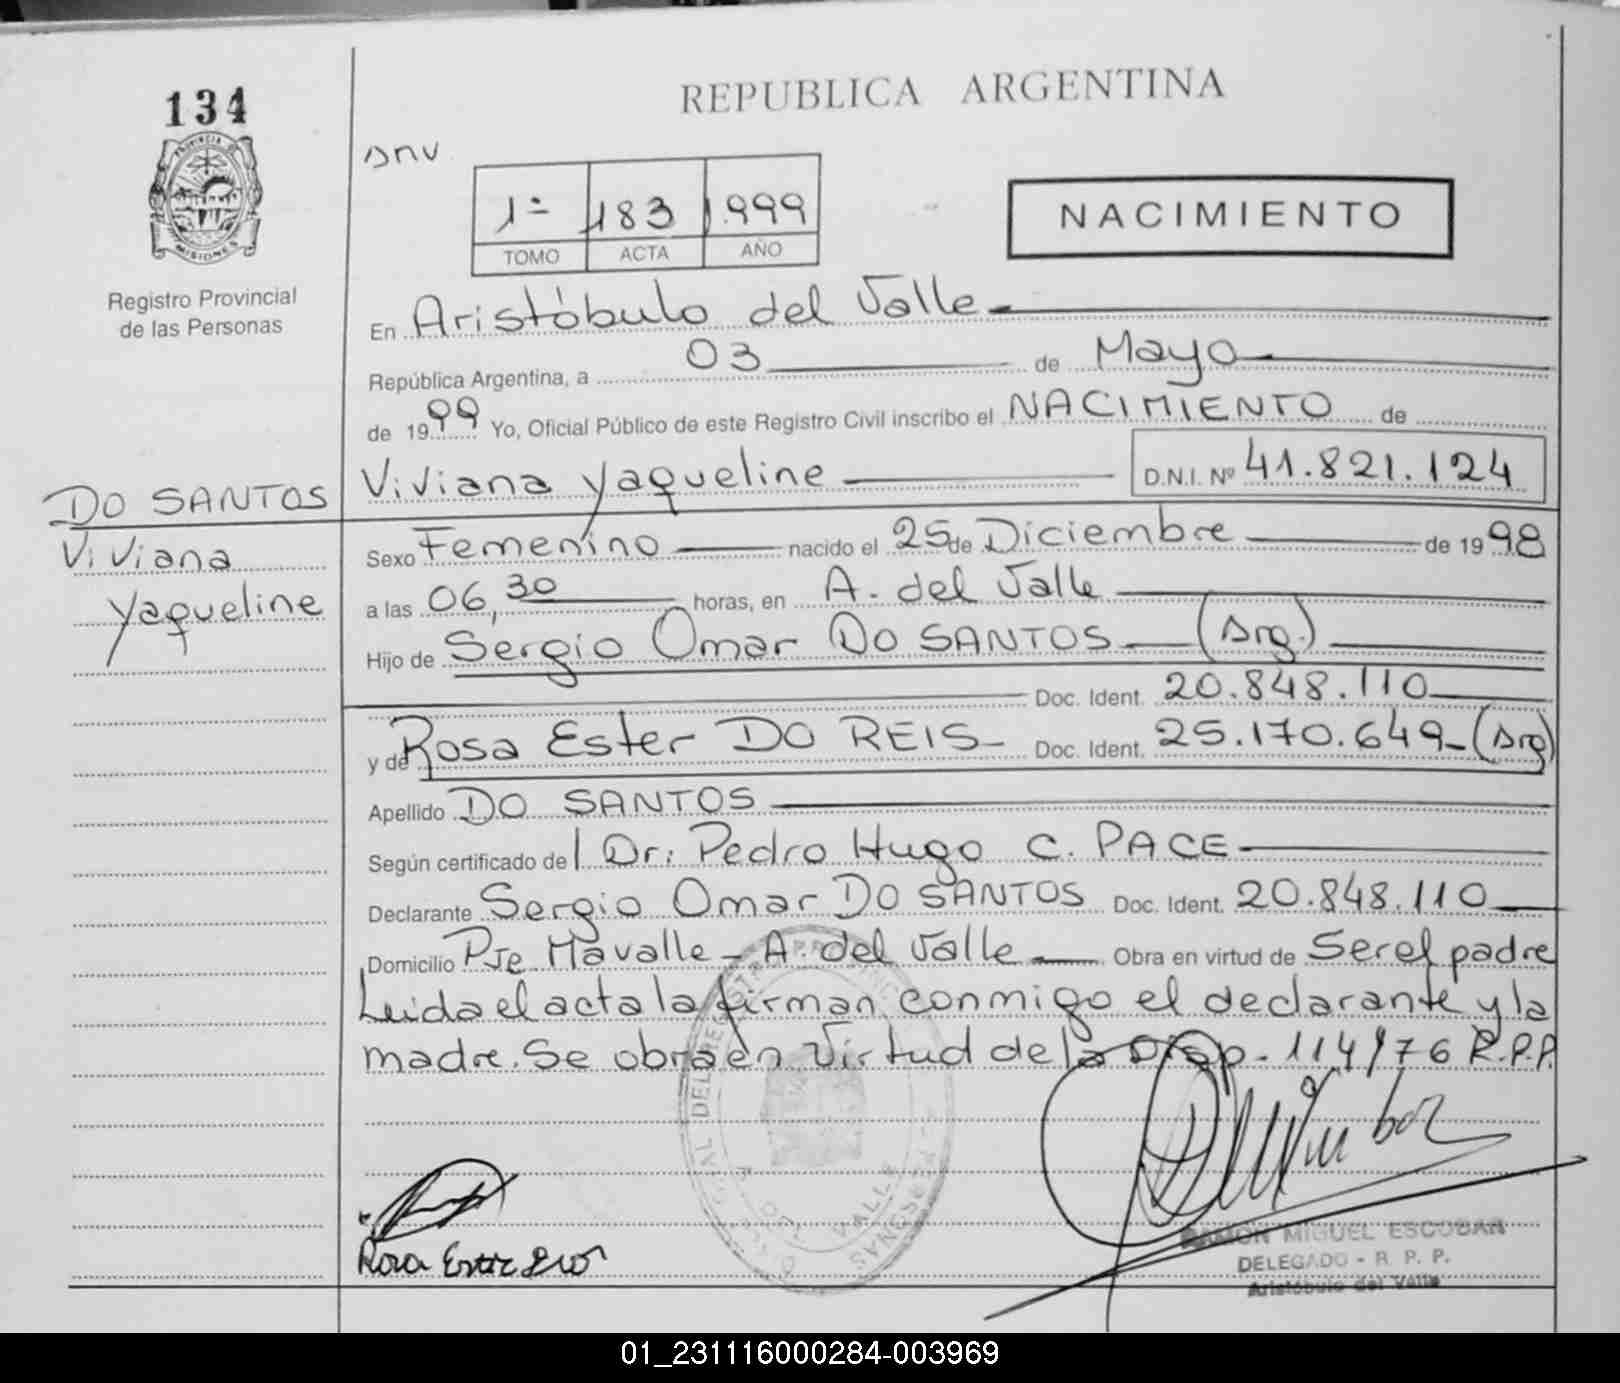 134
PROVINCIA DE
MISIONES
Registro Provincial
de las Personas
REPUBLICA ARGENTINA
1º 183 1.999
TOMO ACTA AÑO
NACIMIENTO
En Aristóbulo del Valle
República Argentina, a 03 de Mayo
de 1999 Yo, Oficial Público de este Registro Civil inscribo el NACIMIENTO de
Viviana Yaqueline D.N.I. Nº 41.821.124
DO SANTOS
Viviana
Yaqueline
Sexo Femenino nacido el 25 de Diciembre de 1998
a las 06,30 horas, en A. del Valle
Hijo de Sergio Omar DO SANTOS (Arg.)
Doc. Ident. 20.848.110
y de Rosa Ester DO REIS Doc. Ident. 25.170.649 (Arg)
Apellido DO SANTOS
Según certificado de Dr: Pedro Hugo C. PACE
Declarante Sergio Omar DO SANTOS Doc. Ident. 20.848.110
Domicilio Pje Mavalle - A. del Valle Obra en virtud de Ser el padre
Leida el acta la firman conmigo el declarante y la
madre. Se obra en Virtud de la Disp. 114/76 R.P.P.
Rosa Ester
RAMON MIGUEL ESCOBAR
DELEGADO - R. P. P.
Aristóbulo del Valle
01_231116000284-003969